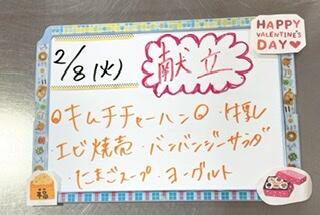 HAPPY
VALENTINE'S
DAY
2/8(火)
献立
キムチチャーハン ・牛乳
・エビ焼売 ・バンバンジーサラダ
・たまごスープ ・ヨーグルト
福